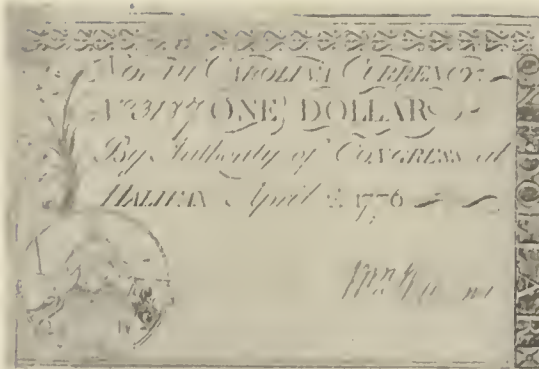 NORTH CAROLINA CURRENCY
ONE DOLLAR
By Authority of CONGRESS at
HALIFAX April 2 1776
ONE DOLLAR